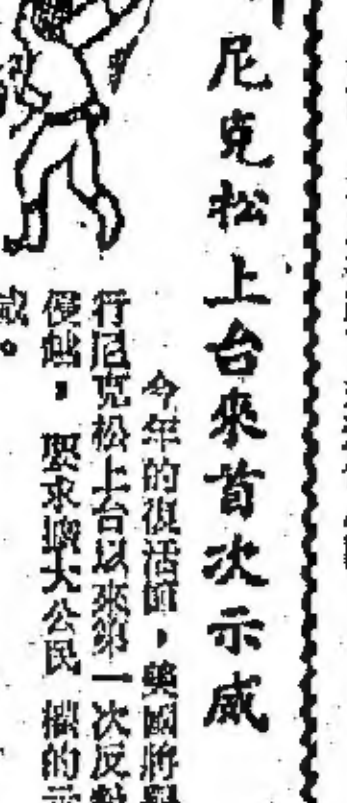 尼克松上台來首次示威
今年的復活節，美國將舉
行尼克松上台以來第一次反對
侵越，要求擴大公民權的示
威。